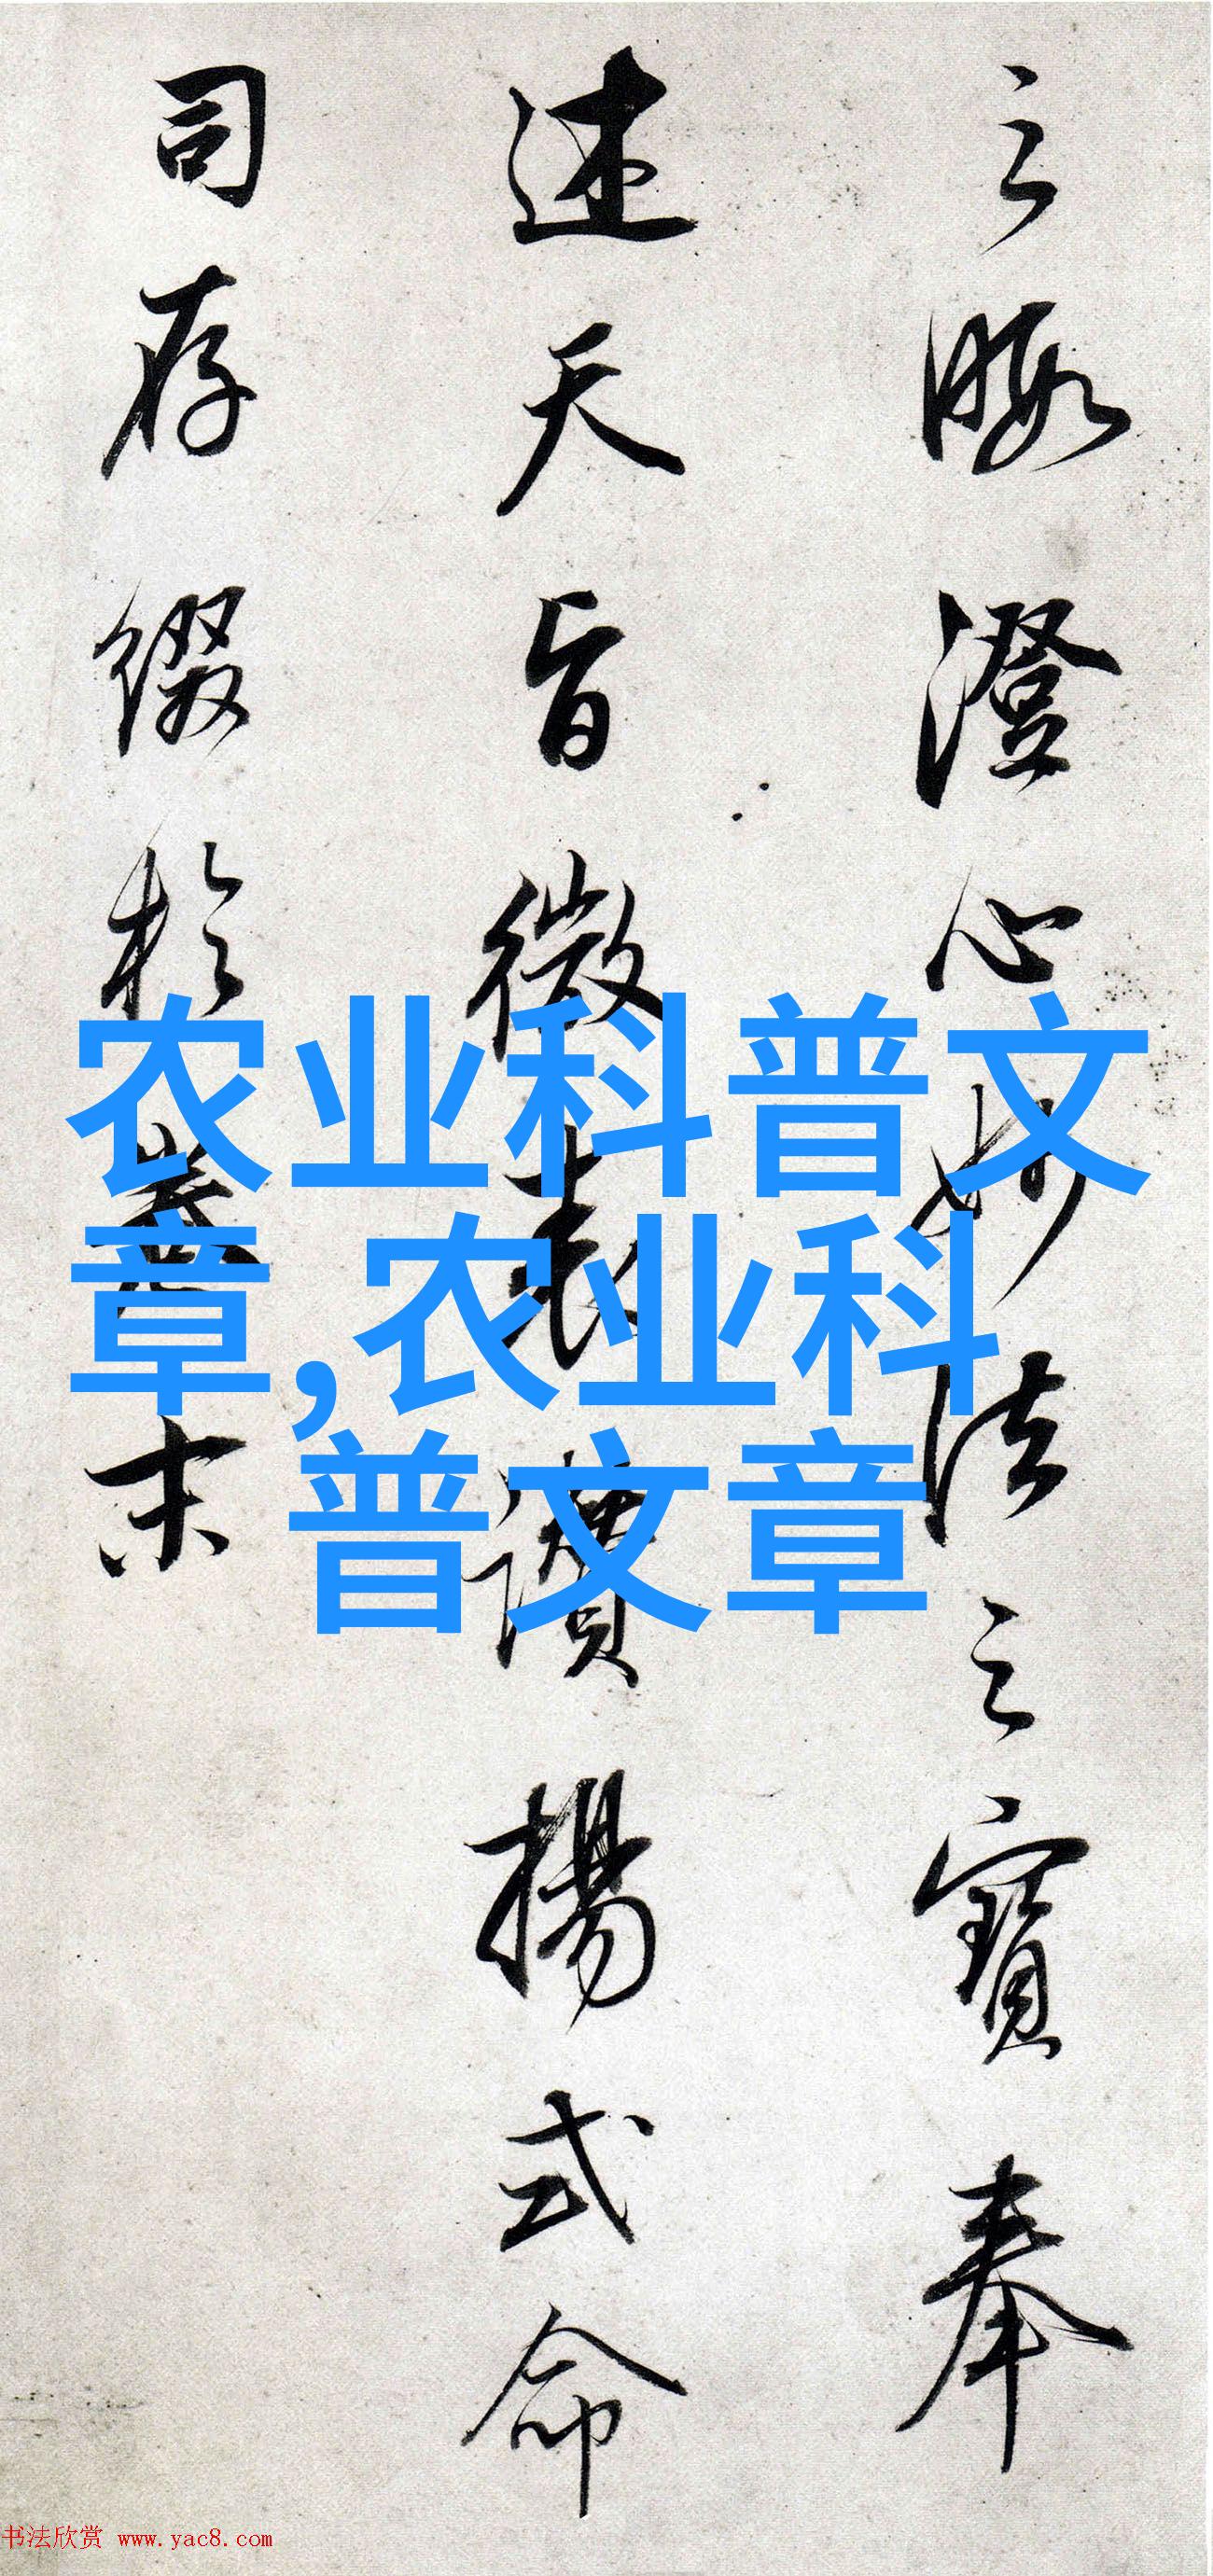 之暇澄心妙法之寶奉
述天旨微表讚揚式命
司存綴於卷末
农业科普文
章,农业科
普文章
书法欣赏 www.yac8.com